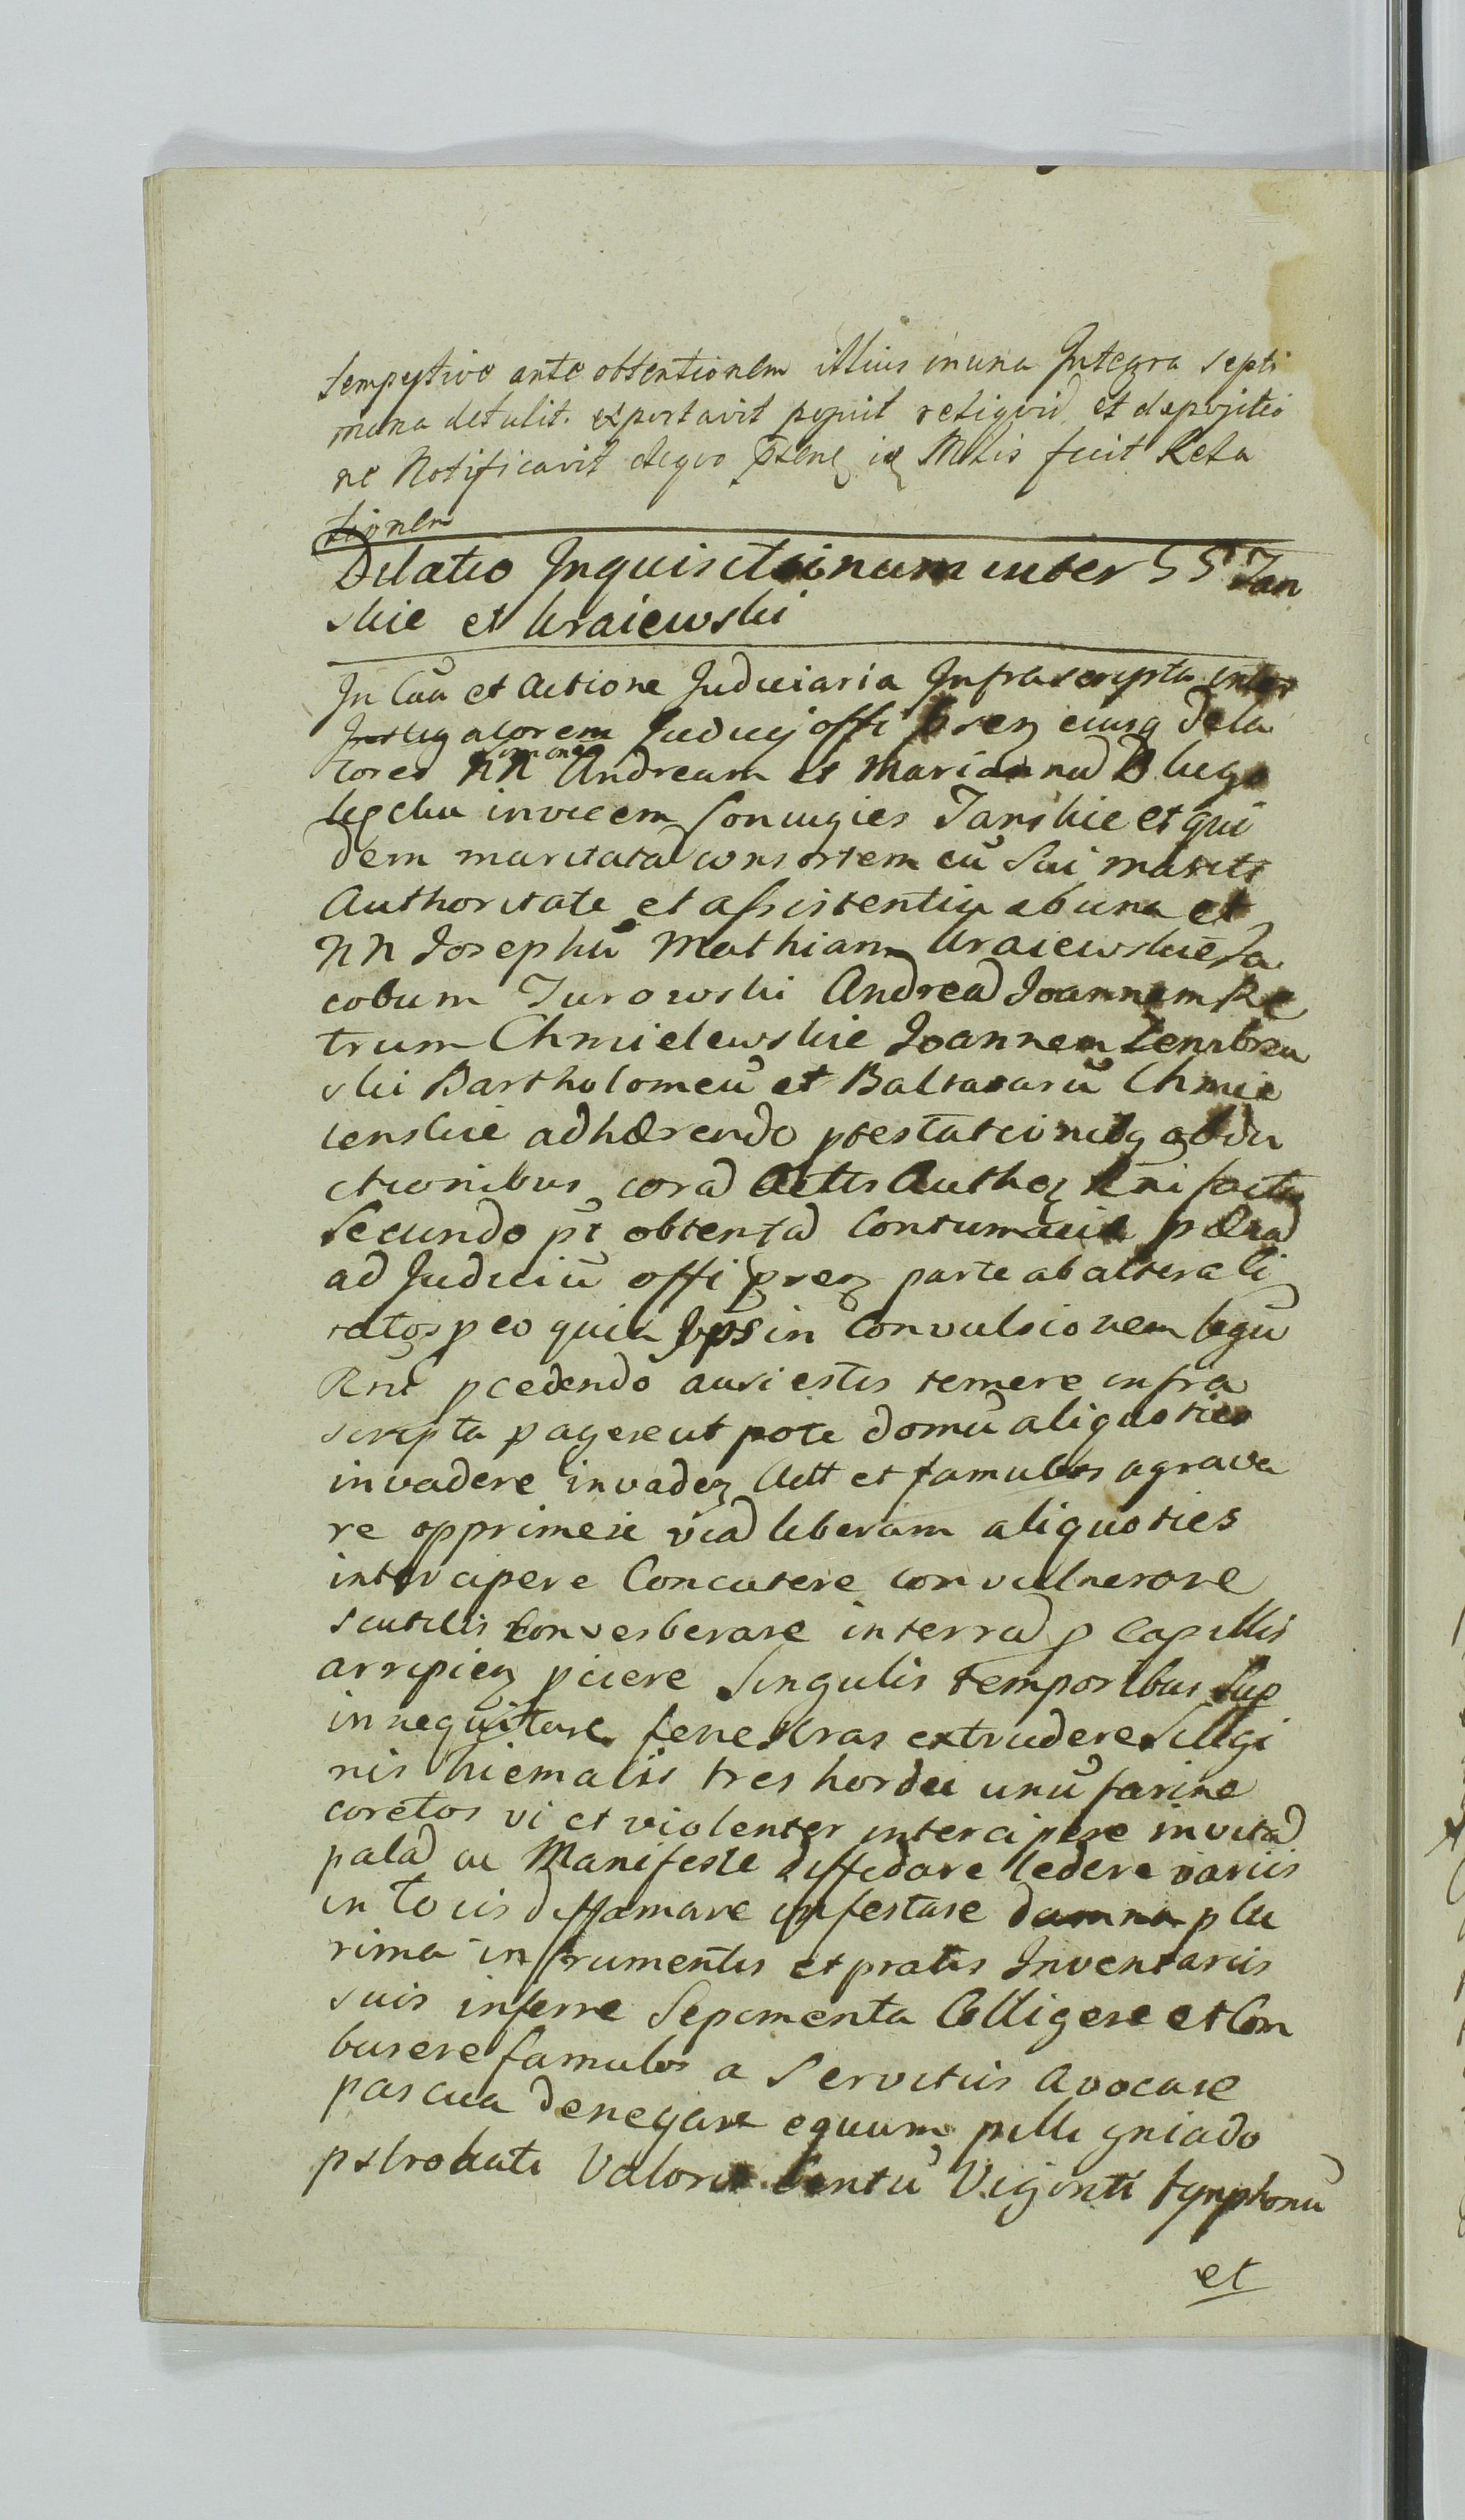 tempestive ante obtentionem illius in una Integra septi
mana detulit. exportavit posuit reliquid et depositio
ne Notificavit de quo pñtem is Mlis fecit Rela
tionem
Dilatio Inquisitioinum inter SS Jan
skie et Kraiewski
In Cãa et Actione Judiciaria Infrascripta inter
Instigatorem Judicij offi eiusq dela
tores NN Simonem Andream et Mariannã Dlugo
lęcka invicem Coniuges Janskie et qui
dem maritatã consortem cũ Sui mariti
Authoritate et assistentia ab una et
NN Josephũ Mathiam Kraiewskie Ja
cobum Turowski Andreã Joannem Pe
trum Chmielewskie Joannem
ski Bartholomeũ et Baltazarũ Chmie
lenskie adhærendo ptestationibq obdu
ctionibus corã Actis Authen Rni factis
Secundo pt obtentã Contumacia
ad Judiciũ offi pren parte ab altera Ci
tatos p eo quia Ips in Convulsionem legũ
Rni pcedendo ausi estis temere infra
scripta pagere ut pote domũ aliquoties
invadere invaden Actt et famulos agrava
re opprimere viã liberam aliquoties
intercipere Concutere convulnerare
scuticis Converberare in terrã p Capillis
arripien piicere Singulis temporibus Sup
innequitare fenestras extrudere Silligi
nis hiemalis tres hordei unũ farine
coretos vi et violenter intercipere invitã
palã ac Manifeste diffidare ledere variis
in locis diffamare infestare damna plu
rima in frumentis et pratis Inventariis
suis inferre Sepimenta Colligere et Com
burere famulos a Servitiis avocare
pascua denegare equum pilli gniado
pstrokati Valoris Centũ Viginti tynphonũ
et